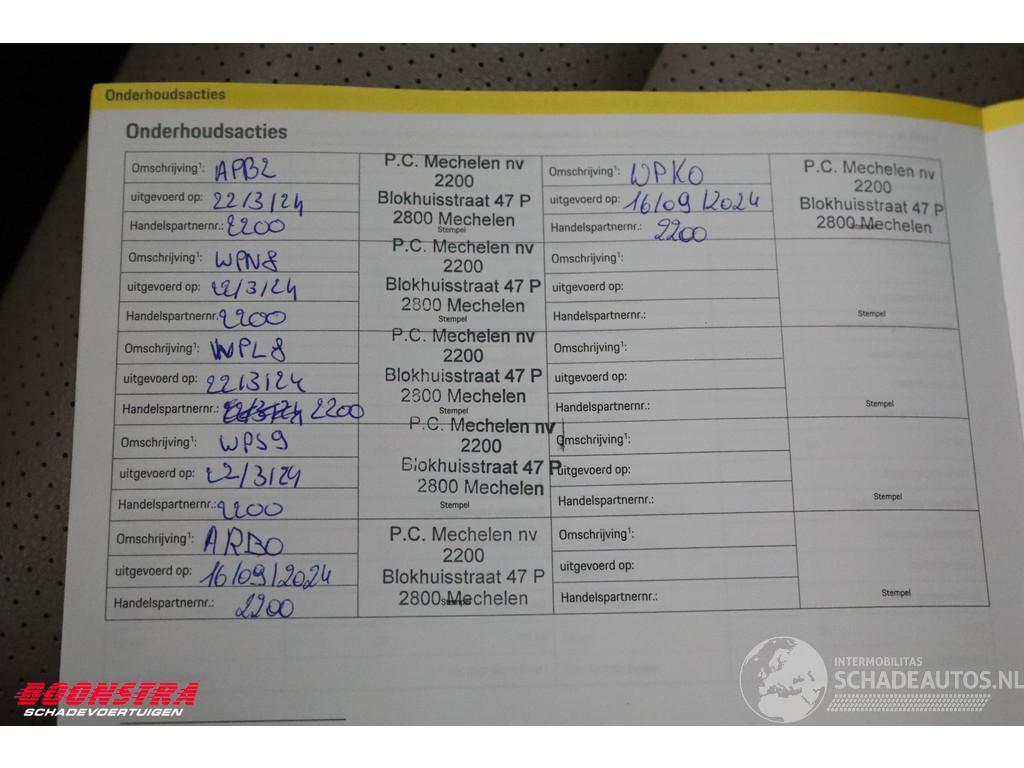 Onderhoudsacties
Onderhoudsacties
Omschrijving¹: APB2
uitgevoerd op: 22/3/24
Handelspartnernr.: 2200
P.C. Mechelen nv
2200
Blokhuisstraat 47 P
2800 Mechelen
Stempel
Omschrijving¹: WPK0
uitgevoerd op: 16/09/2024
Handelspartnernr.: 2200
P.C. Mechelen nv
2200
Blokhuisstraat 47 P
2800 Mechelen
Stempel
Omschrijving¹: WPN8
uitgevoerd op: 22/3/24
Handelspartnernr.: 2200
P.C. Mechelen nv
2200
Blokhuisstraat 47 P
2800 Mechelen
Stempel
Omschrijving¹:
uitgevoerd op:
Handelspartnernr.:
Stempel
Omschrijving¹: WPL8
uitgevoerd op: 22/3/24
Handelspartnernr.: 22/3/24 2200
P.C. Mechelen nv
2200
Blokhuisstraat 47 P
2800 Mechelen
Stempel
Omschrijving¹:
uitgevoerd op:
Handelspartnernr.:
Stempel
Omschrijving¹: WPS9
uitgevoerd op: 22/3/24
Handelspartnernr.: 2200
P.C. Mechelen nv
2200
Blokhuisstraat 47 P
2800 Mechelen
Stempel
Omschrijving¹:
uitgevoerd op:
Handelspartnernr.:
Stempel
Omschrijving¹: ARB0
uitgevoerd op: 16/09/2024
Handelspartnernr.: 2200
P.C. Mechelen nv
2200
Blokhuisstraat 47 P
2800 Mechelen
Stempel
Omschrijving¹:
uitgevoerd op:
Handelspartnernr.:
Stempel
BOONSTRA
SCHADEVOERTUIGEN
INTERMOBILITAS
SCHADEAUTOS.NL